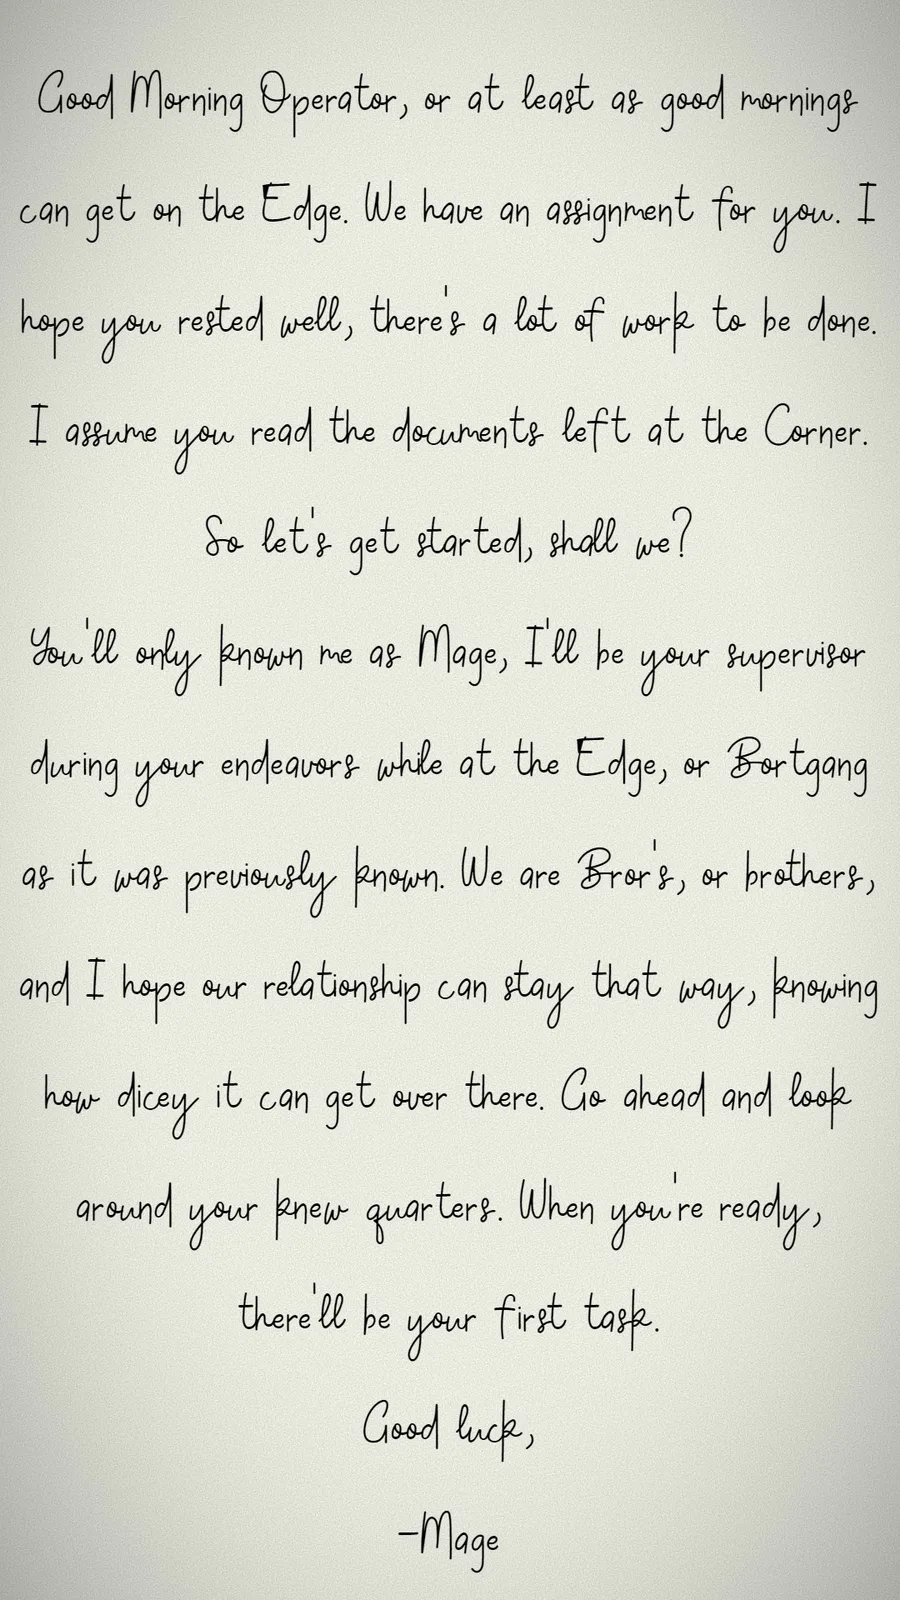 Good Morning Operator, or at least as good mornings
can get on the Edge. We have an assignment for you. I
hope you rested well, there's a lot of work to be done.
I assume you read the documents left at the Corner.
So let's get started, shall we?
You'll only known me as Mage, I'll be your supervisor
during your endeavors while at the Edge, or Bortgang
as it was previously known. We are Bror's, or brothers,
and I hope our relationship can stay that way, knowing
how dicey it can get over there. Go ahead and look
around your knew quarters. When you're ready,
there'll be your first task.
Good luck,
-Mage